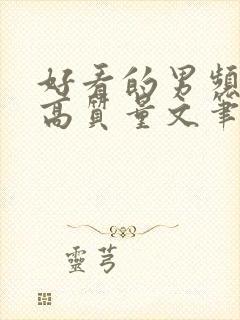 好看的男頻
高質量文筆
靈芎